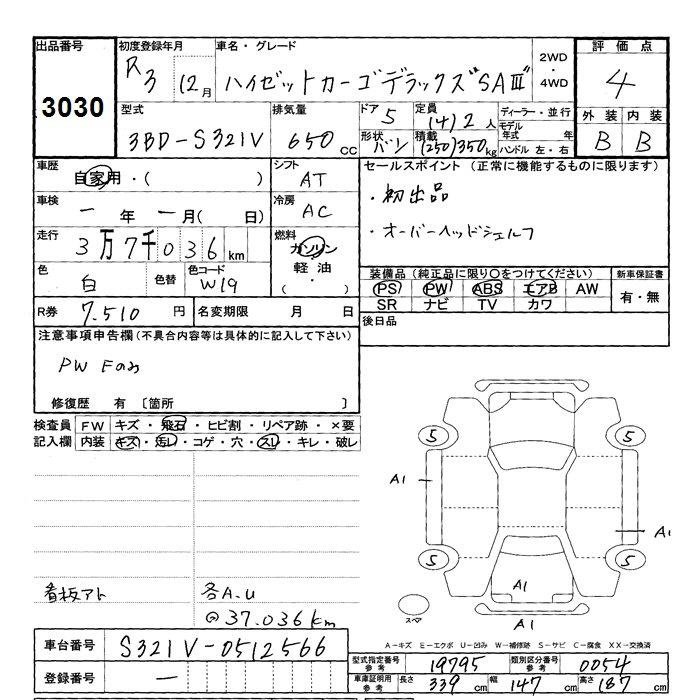 出品番号
3030
初度登録年月
R3 12月
車名・グレード
ハイゼットカーゴデラックス"SAⅢ"
2WD
・
4WD
評価点
4
型式
3BD-S321V
排気量
650cc
ドア
5
定員
(4)2人
形状
バン
積載
(250)350kg
ディーラー・並行
モデル年式 年
ハンドル 左・右
外装 内装
B B
車歴
自家用・( )
シフト
AT
車検
一年一月( 日)
冷房
AC
走行
3万7千036km
燃料
ガソリン
・
軽油
・
色
白
色替
色コード
W19
R券
7.510円
名変期限 月 日
セールスポイント (正常に機能するものに限ります)
・初出品
・オーバーヘッドシェルフ
装備品(純正品に限り○をつけてください)
PS PW ABS エアB AW
SR ナビ TV カワ
新車保証書
有・無
後日品
注意事項申告欄(不具合内容等は具体的に記入して下さい)
PW Fのみ
修復歴 有 〔箇所 〕
検査員 FW キズ・飛石・ヒビ割・リペア跡・×要
記入欄 内装 キズ・汚レ・コゲ・穴・スレ・キレ・破レ
看板アト
各A.U
@37.036km
5 5
A1
A1
5 5
A1
スペア
A1
A-キズ E-エクボ U-凹み W-補修跡 S-サビ C-腐食 XX-交換済
車台番号
S321V-0512566
登録番号
一
型式指定番号
参考
19795
類別区分番号
参考
0054
車庫証明用
参考
長さ 339cm
幅 147cm
高さ 187cm